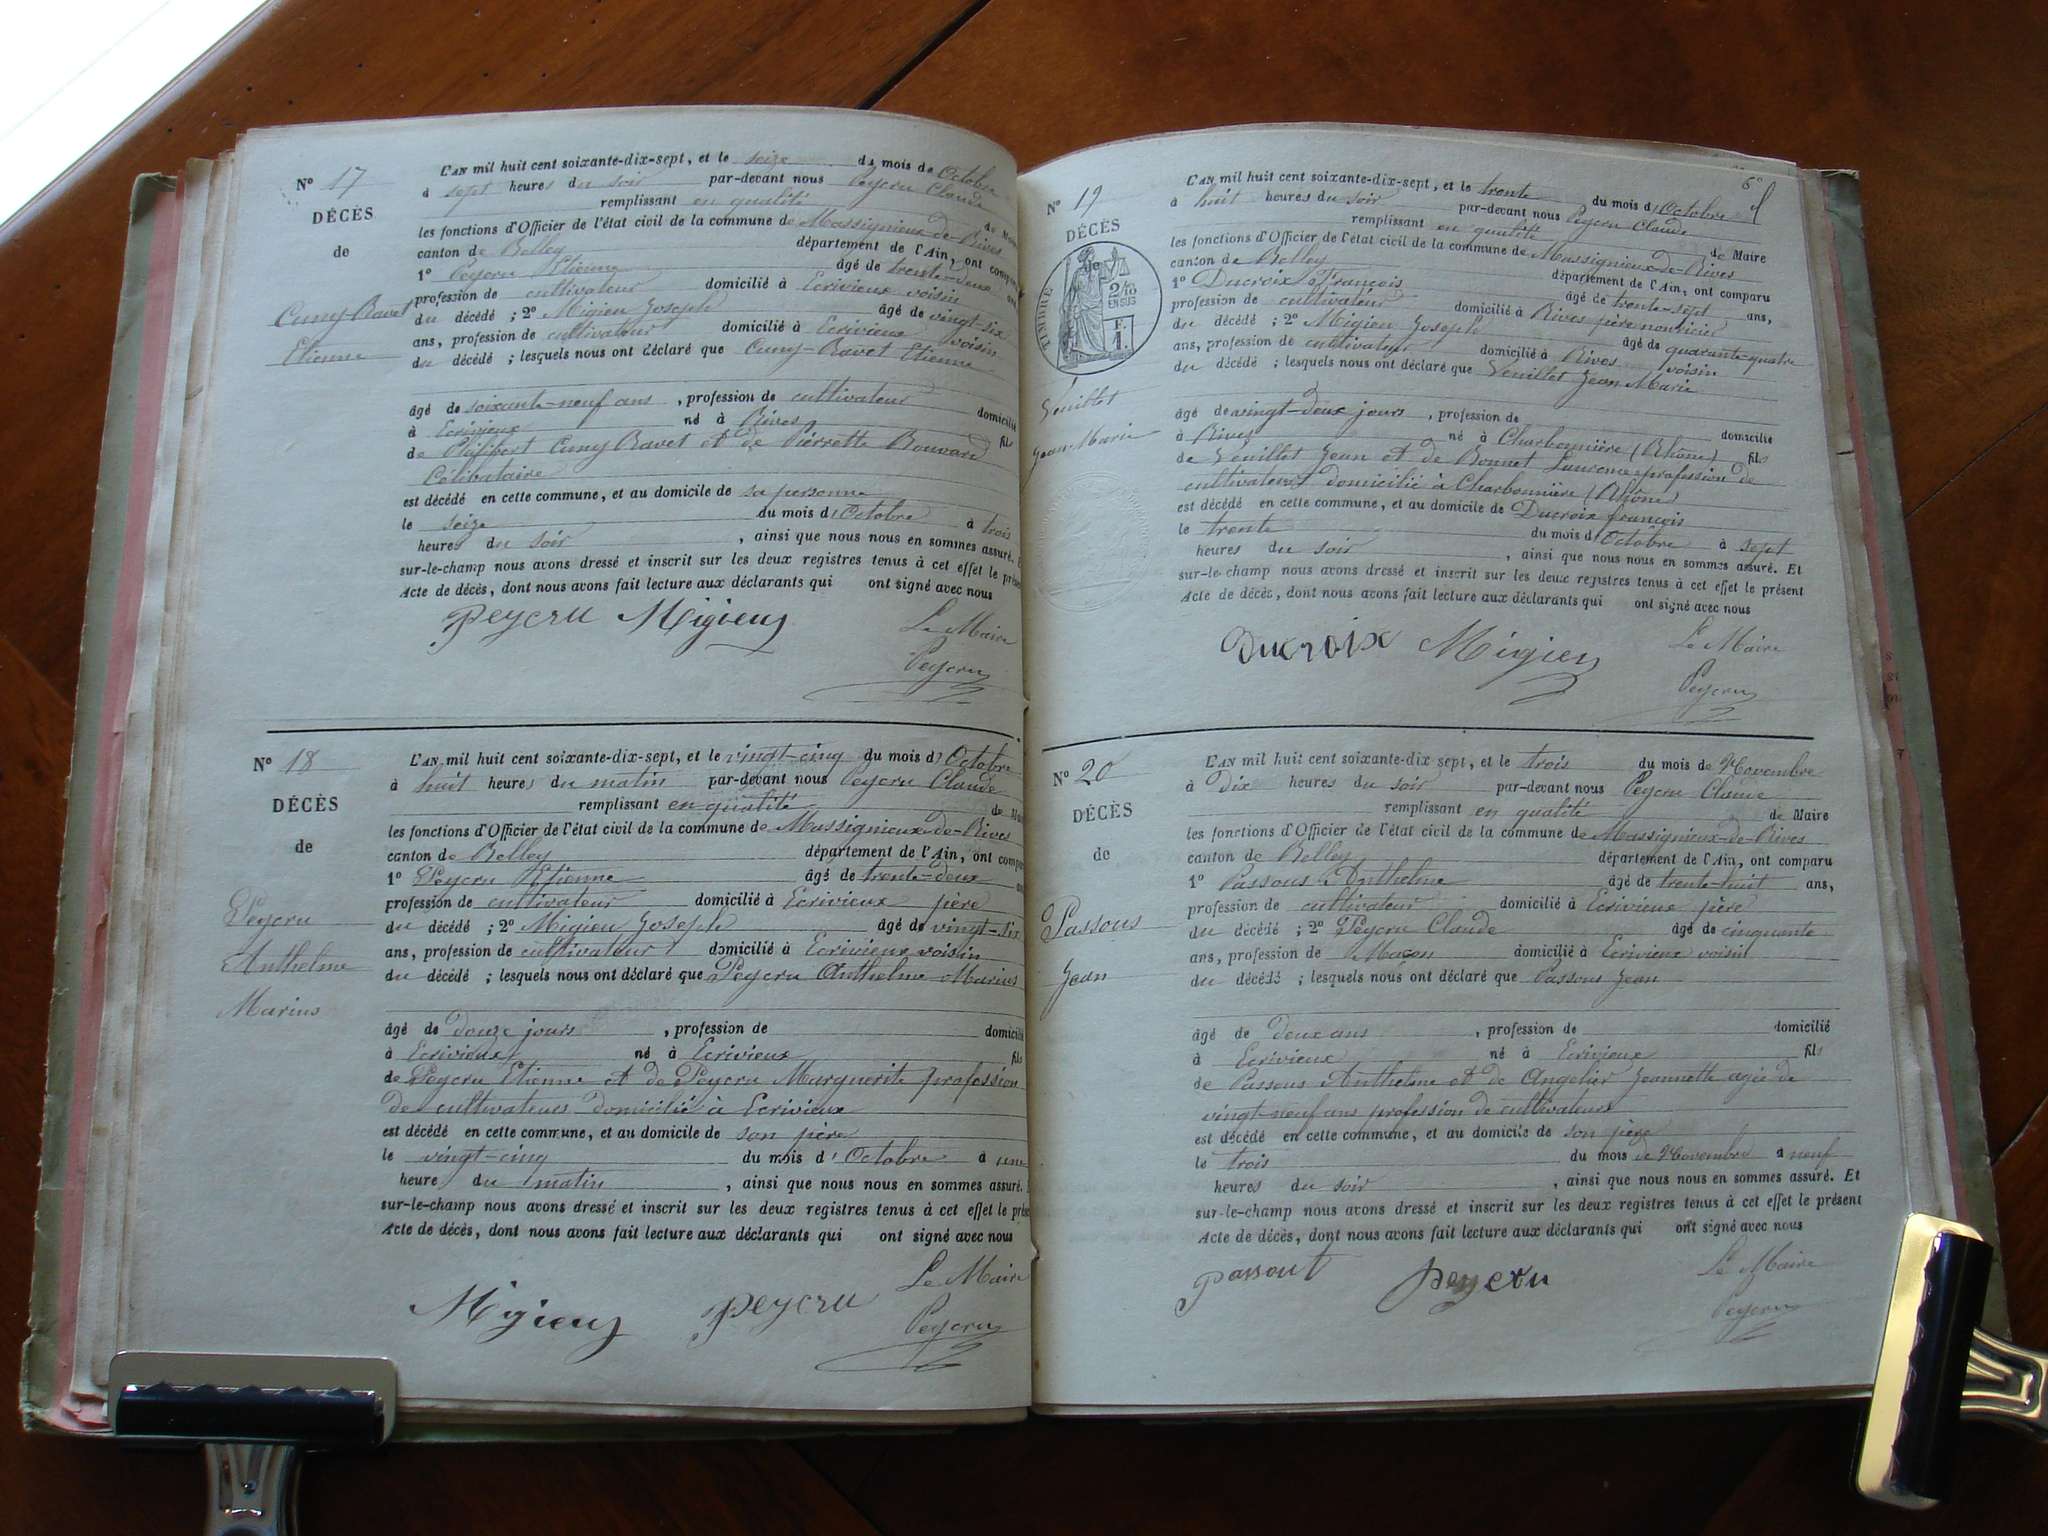 N° 17
DÉCÈS
de
Cuny Ravet
Etienne
L'AN mil huit cent soixante-dix-sept, et le seize du mois de Octobre
à sept heures du soir par-devant nous Peycru Claude
remplissant en qualité de Maire
les fonctions d'Officier de l'état civil de la commune de Massignieux-de-Rives
canton de Belley département de l'Ain, ont comparu
1° Peycru Etienne âgé de trente-deux ans
profession de cultivateur domicilié à Ecrivieux voisin
du décédé ; 2° Migieu Joseph âgé de vingt-six
ans, profession de cultivateur domicilié à Ecrivieux voisin
du décédé ; lesquels nous ont déclaré que Cuny-Ravet Etienne
âgé de soixante-neuf ans , profession de cultivateur domicilié
à Ecrivieux né à Rives fils
de Cuny Ravet et de Pierrette Bouvard
Célibataire
est décédé en cette commune, et au domicile de sa personne
le seize du mois d'Octobre à trois
heures du soir , ainsi que nous nous en sommes assuré. E
sur-le-champ nous avons dressé et inscrit sur les deux registres tenus à cet effet le prése
Acte de décès, dont nous avons fait lecture aux déclarants qui ont signé avec nous
Peycru Migieu
Le Maire
Peycru
N° 18
DÉCÈS
de
Peycru
Anthelme
Marius
L'AN mil huit cent soixante-dix-sept, et le vingt-cinq du mois d'Octobre
à huit heures du matin par-devant nous Peycru Claude
remplissant en qualité de Mai
les fonctions d'Officier de l'état civil de la commune de Massignieux-de-Rives
canton de Belley département de l'Ain, ont compar
1° Peycru Etienne âgé de trente-deux ans
profession de cultivateur domicilié à Ecrivieux père
du décédé ; 2° Migieu Joseph âgé de vingt-six
ans, profession de cultivateur domicilié à Ecrivieux voisin
du décédé ; lesquels nous ont déclaré que Peycru Anthelme Marius
âgé de douze jours , profession de domicilié
à Ecrivieux né à Ecrivieux fils
de Peycru Etienne et de Peycru Marguerite profession
de cultivateurs domicilié à Ecrivieux
est décédé en cette commune, et au domicile de son père
le vingt-cinq du mois d'Octobre à une
heure du matin , ainsi que nous nous en sommes assuré.
sur-le-champ nous avons dressé et inscrit sur les deux registres tenus à cet effet le prése
Acte de décès, dont nous avons fait lecture aux déclarants qui ont signé avec nous
Migieu Peycru
Le Maire
Peycru
6e
N° 19
DÉCÈS
de
TIMBRE
2/10
EN SUS
F.
1.
Veuillet
Jean-Marie
L'AN mil huit cent soixante-dix-sept, et le trente du mois d'Octobre
à huit heures du soir par-devant nous Peycru Claude
remplissant en qualité de Maire
les fonctions d'Officier de l'état civil de la commune de Massignieux-de-Rives
canton de Belley département de l'Ain, ont comparu
1° Ducroix François âgé de trente-sept ans,
profession de cultivateur domicilié à Rives père nourricier
du décédé ; 2° Migieu Joseph âgé de quarante-quatre
ans, profession de cultivateur domicilié à Rives voisin
du décédé ; lesquels nous ont déclaré que Veuillet Jean Marie
âgé de vingt-deux jours , profession de domicilié
à Rives né à Charbonnière (Rhône) fils
de Veuillet Jean et de Bonnet Laurence profession de
cultivateurs domicilié à Charbonnière (Rhône)
est décédé en cette commune, et au domicile de Ducroix françois
le trente du mois d'Octobre à sept
heures du soir , ainsi que nous nous en sommes assuré. Et
sur-le-champ nous avons dressé et inscrit sur les deux registres tenus à cet effet le présent
Acte de décès, dont nous avons fait lecture aux déclarants qui ont signé avec nous
Ducroix Migieu
Le Maire
Peycru
N° 20
DÉCÈS
de
Passous
Jean
L'AN mil huit cent soixante-dix sept, et le trois du mois de Novembre
à Dix heures du soir par-devant nous Peycru Claude
remplissant en qualité de Maire
les fonctions d'Officier de l'état civil de la commune de Massignieux-de-Rives
canton de Belley département de l'Ain, ont comparu
1° Passous Anthelme âgé de trente-huit ans,
profession de cultivateur domicilié à Ecrivieux père
du décédé ; 2° Peycru Claude âgé de cinquante
ans, profession de Maçon domicilié à Ecrivieux voisin
du décédé ; lesquels nous ont déclaré que Passous Jean
âgé de Deux ans , profession de domicilié
à Ecrivieux né à Ecrivieux fils
de Passous Anthelme et de Angelier Jeannette agée de
vingt-neuf ans profession de cultivateurs
est décédé en cette commune, et au domicile de son père
le trois du mois de Novembre à neuf
heures du soir , ainsi que nous nous en sommes assuré. Et
sur-le-champ nous avons dressé et inscrit sur les deux registres tenus à cet effet le présent
Acte de décès, dont nous avons fait lecture aux déclarants qui ont signé avec nous
Passout Peycru
Le Maire
Peycru